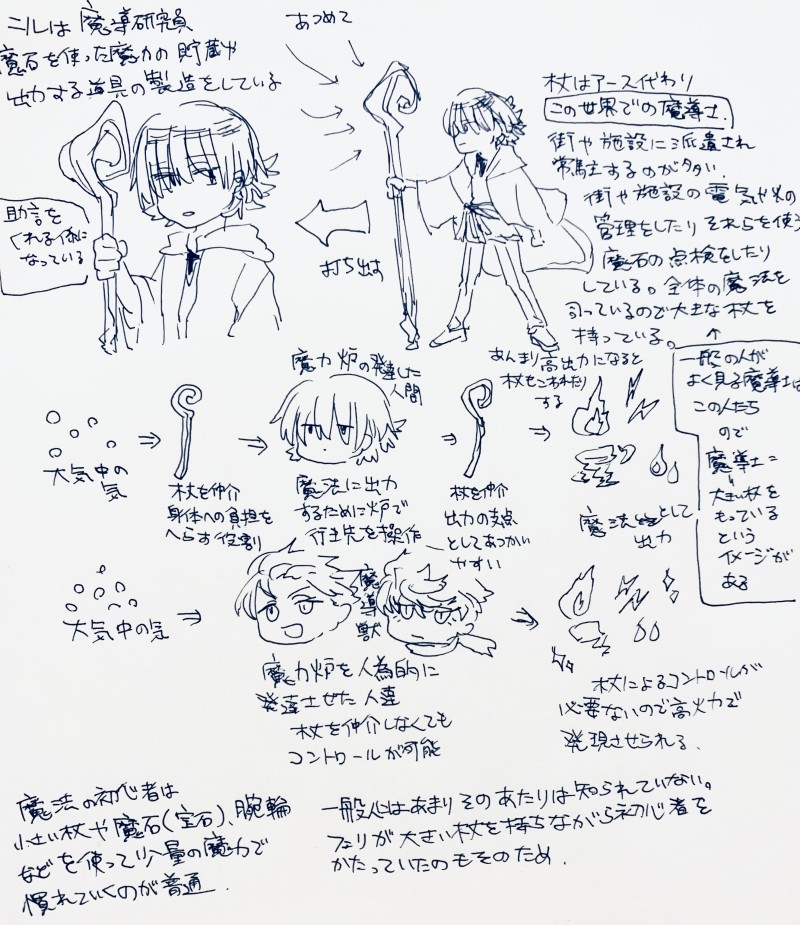 ニルは魔導研究員
魔石を使った魔力の貯蔵や
出力する道具の製造をしている
あつめて
助言を
くれる係に
なっている
打ち出す
杖はアース代わり
この世界での魔導士.
街や施設に派遣され
常駐するのが多い.
街や施設の電気や水の
管理をしたりそれらを使う
魔石の点検をしたり
している。全体の魔法を
司っているので大きな杖を
持っている。
一般の人が
よく見る魔導士は
この人たち
ので
魔導士=
大きい杖を
もっている
という
イメージが
ある
あんまり高出力になると
杖もこわれたり
する
魔力炉の発達した
人間
大気中の
気
杖を仲介
身体への負担を
へらす役割
魔法に出力
するために炉で
行き先を操作
杖を仲介
出力の支点
としてあつかい
やすい
魔法として
出力
大気中の気
魔導獣
魔力炉を人為的に
発達させた人達
杖を仲介しなくても
コントロールが可能
杖によるコントロールが
必要ないので高火力で
発現させられる.
魔法の初心者は
小さい杖や魔石(宝石)、腕輪
などを使って少量の魔力で
慣れていくのが普通.
一般人はあまりそのあたりは知られていない。
フェリが大きい杖を持ちながら初心者を
かたっていたのもそのため.